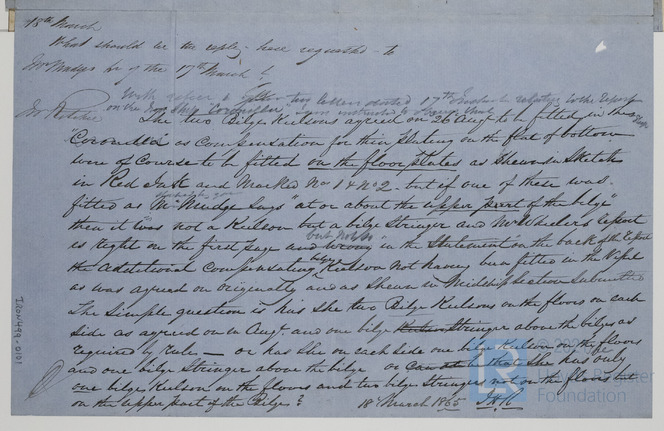 18th March
What should be the reply here requested to
Mr Mudge's of the 17th March?
With respect to two letters dated 17th Instant relating to the Report
on the Iron Ship "Coromandel"
Mr Ritchie The two Bilge Keelsons agreed on 26 Augt to be fitted in the
as Compensation for thin plating on the flat of bottom
were of Course to be fitted on the floorplates as Shewn in Sketch
in Red Ink and Marked No 1 & No 2 - but if one of these was
fitted as "Mr Mudge Says" at or about the upper part of the bilge"
then it was not a Keelson but a bilge Stringer and Mr Wheeler's Report
is Right on the first page and wrong in the Statement on the back of the Report
the additional Compensating bilge Keelson not having been fitted in the Vessel
as was agreed on originally and as Shewn in Midship Section Submitted
The Simple question is has She two Bilge Keelsons on the floors on each
side as agreed on in Augt and one bilge Stringer above the bilges as
required by rule — or has She on each Side one bilge Keelson on the floors
and one bilge Stringer above the bilge or that She has only
one bilge Keelson on the floors and two bilge Stringers not on the floors but
on the upper part of the Bilges?
18 March 1865
IRON499-0101
LR
Lloyd's Register
Foundation